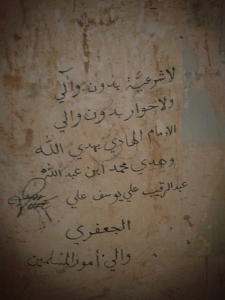 لا شرعيَّة بدون والي
ولا حوار بدون والي
الإمام الهادي بهدي الله
وهدي محمد ابن عبد الله
عبد الرقيب علي يوسف علي
الجعفري
والي أمور المسلمين